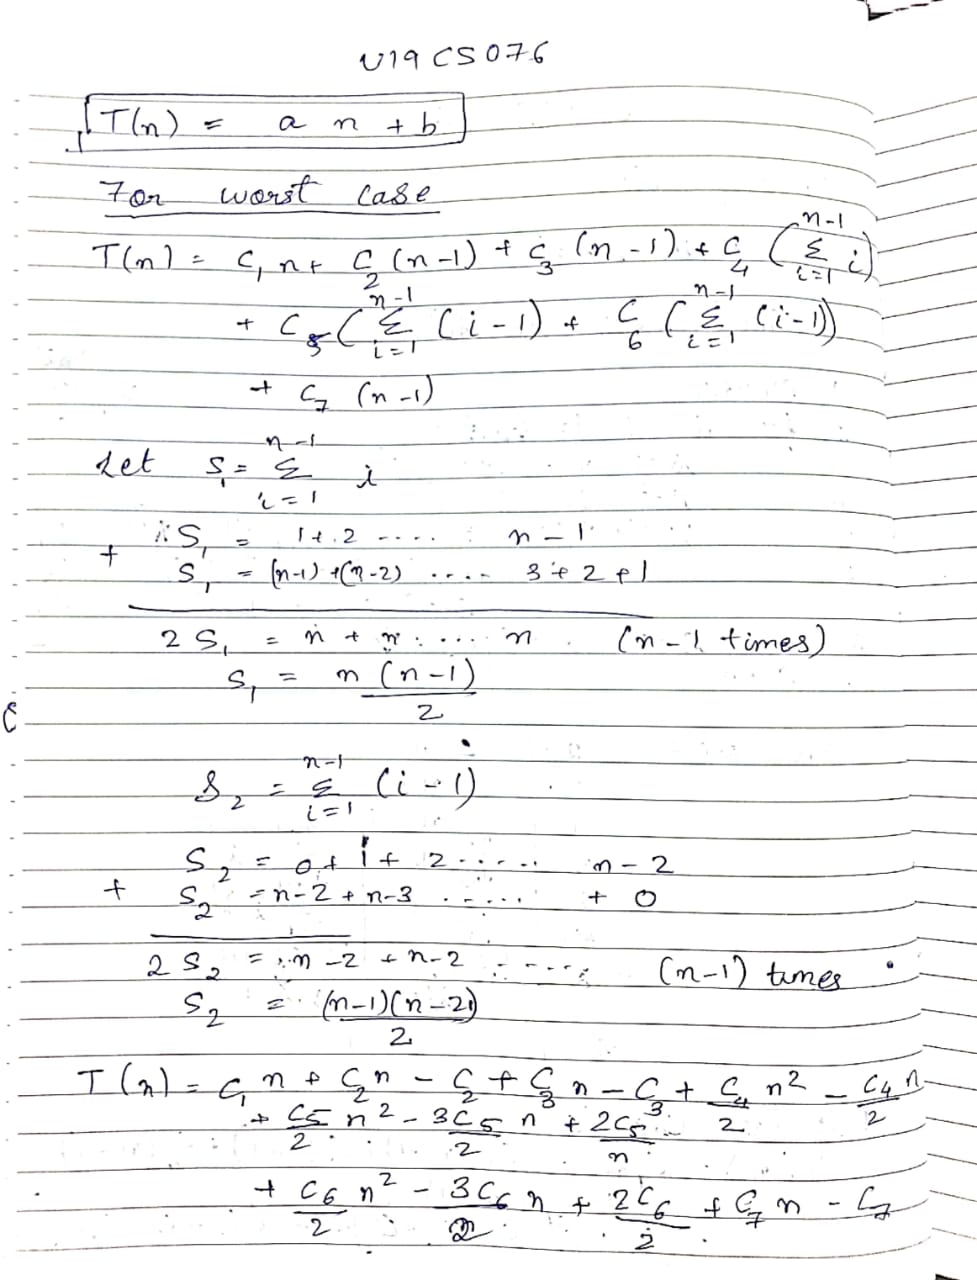 U19CS076
T(n) = a n + b
For worst case
T(n) = C₁n + C₂(n-1) + C₃(n-1) + C₄(Σᵢ₌₁ⁿ⁻¹ i)
+ C₅(Σᵢ₌₁ⁿ⁻¹ (i-1) + C₆(Σᵢ₌₁ⁿ⁻¹ (i-1))
+ C₇(n-1)
Let S₁ = Σᵢ₌₁ⁿ⁻¹ i
S₁ = 1+2 .... n-1
+ S₁ = (n-1)+(n-2) .... 3+2+1
2S₁ = n + n .... n (n-1 times)
S₁ = n(n-1)/2
S₂ = Σᵢ₌₁ⁿ⁻¹ (i-1)
S₂ = 0+1+2 ..... n-2
+ S₂ = n-2+n-3 ..... + 0
2S₂ = n-2+n-2 ..... (n-1) times
S₂ = (n-1)(n-2)/2
T(n) = C₁n + C₂n - C₂ + C₃n - C₃ + C₄/2 n² - C₄n/2
+ C5/2 n² - 3C5/2 n + 2C5/n
+ C6/2 n² - 3C6/2 n + 2C6/2 + C₇n - C₇